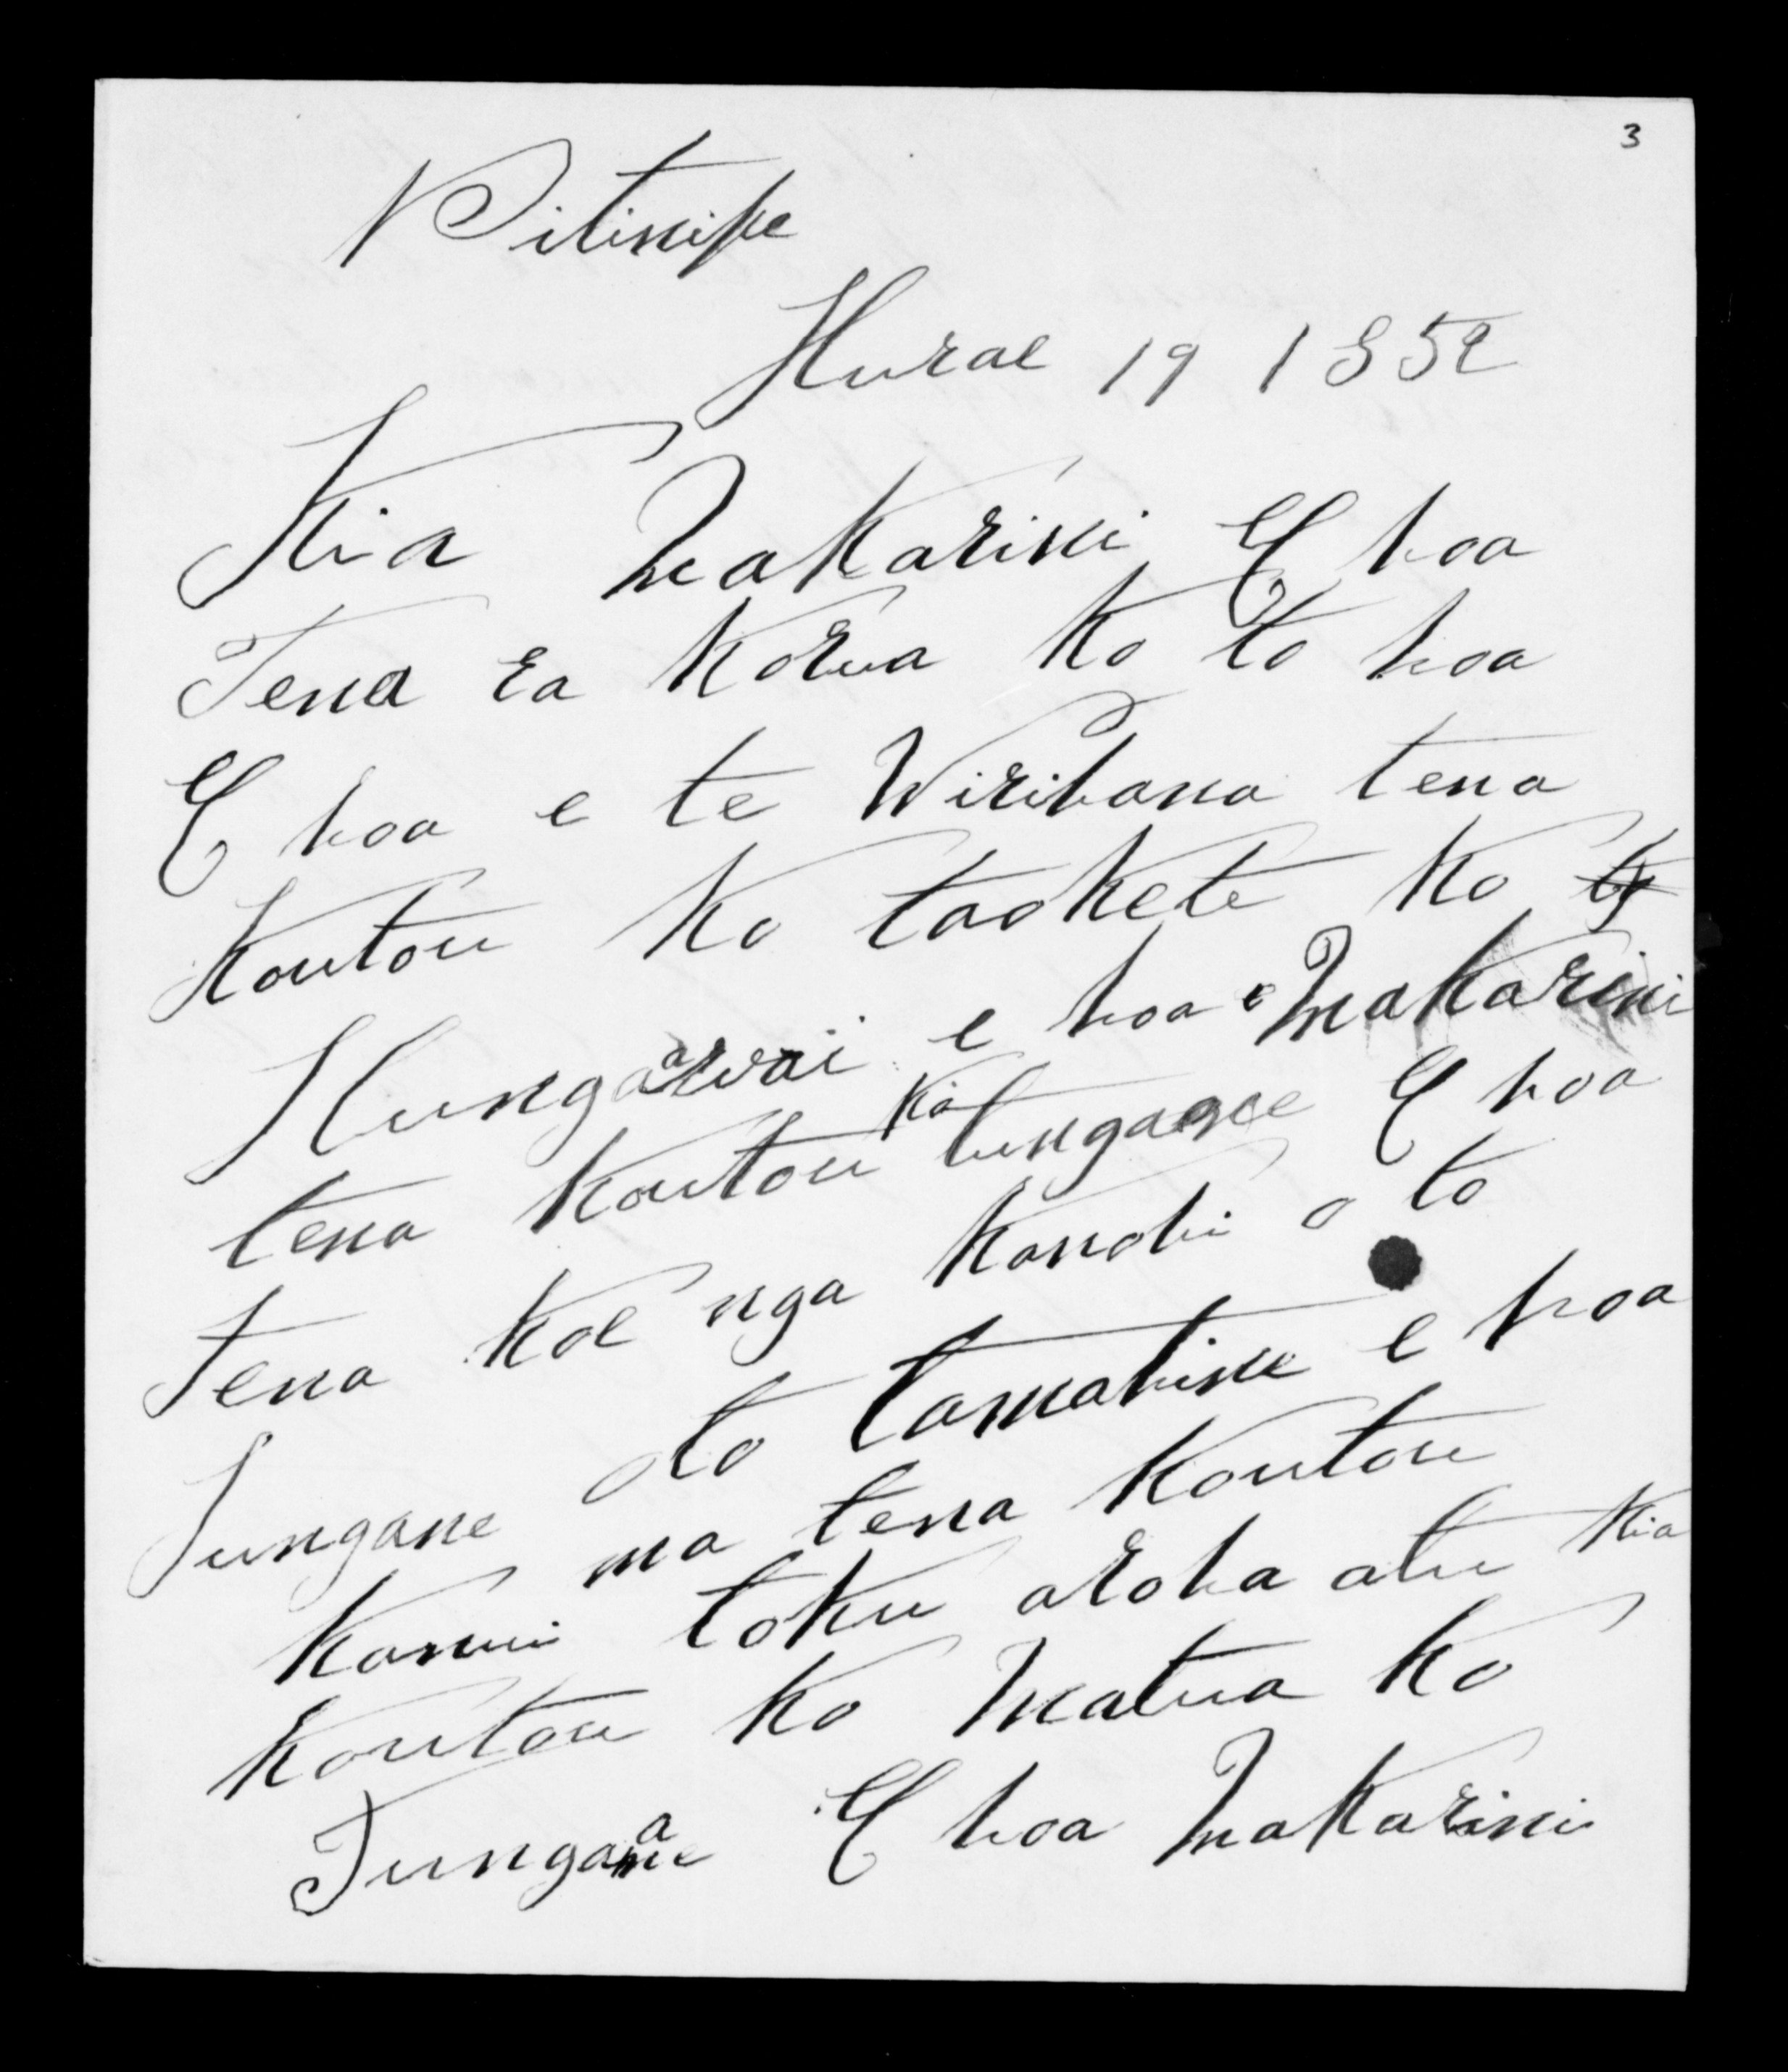 3
Pitinipe
Hurae 19 1852
Kia Makarini E hoa
Tena ra Korua Ko to hoa
E hoa e te Wirihana tena
Koutou Ko taokete Ko
Hungaawai e hoa e Makarini
tena Koutou Ko tungaane E hoa
Tena Koe nga Kanohi o to
Tungane o to tamahine e hoa
Kawui ma tena Koutou
toku aroha atu Kia
Koutou Ko Matua Ko
Tungaane E hoa Makarini